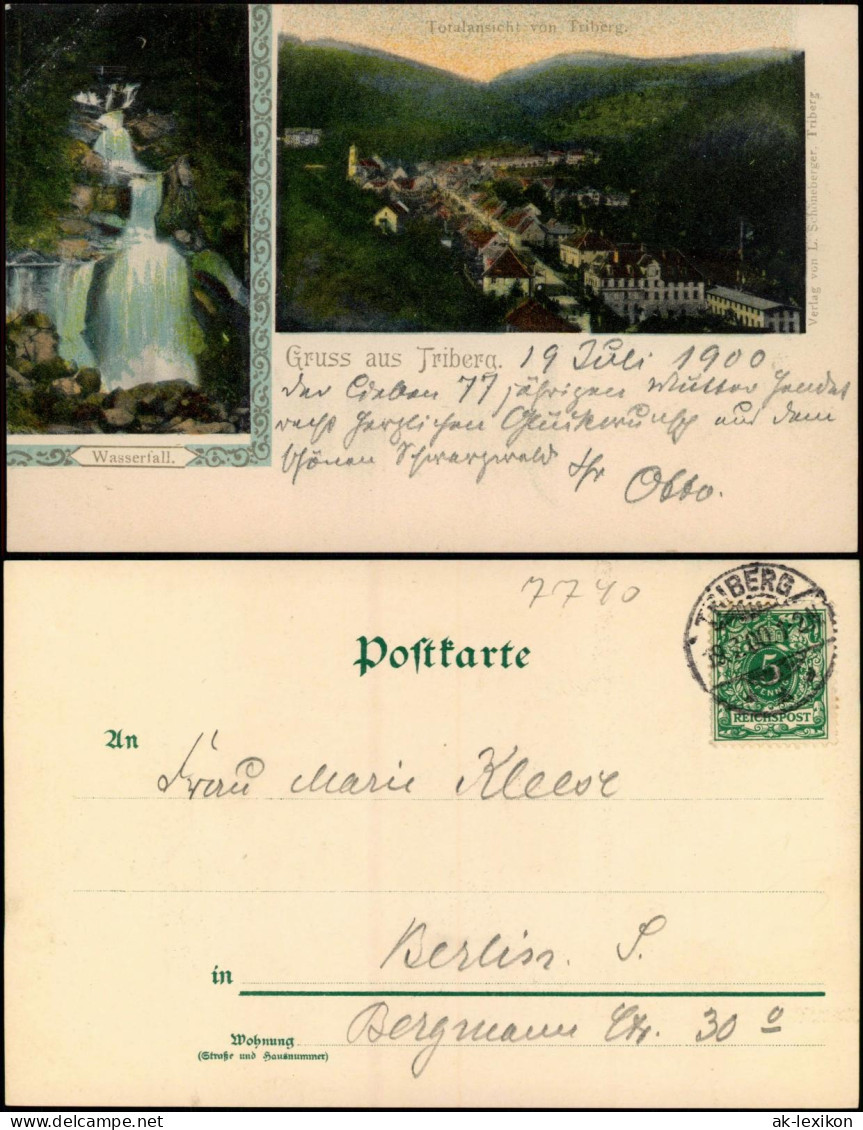 Totalansicht von Triberg.
Verlag von L. Schöneberger, Triberg
Wasserfall.
Gruss aus Triberg. 19 Juli 1900
Der lieben 77 jährigen Mutter sendet
recht herzlichen Glückwunsch aus dem
schönen Schwarzwald Ihr
Otto.
7740
TRIBERG
5
PFENNIG
REICHSPOST
Postkarte
An
Frau Marie Kleese
in Berlin. S.
Wohnung Bergmann Str. 30
(Straße und Hausnummer)
ak-lexikon.com